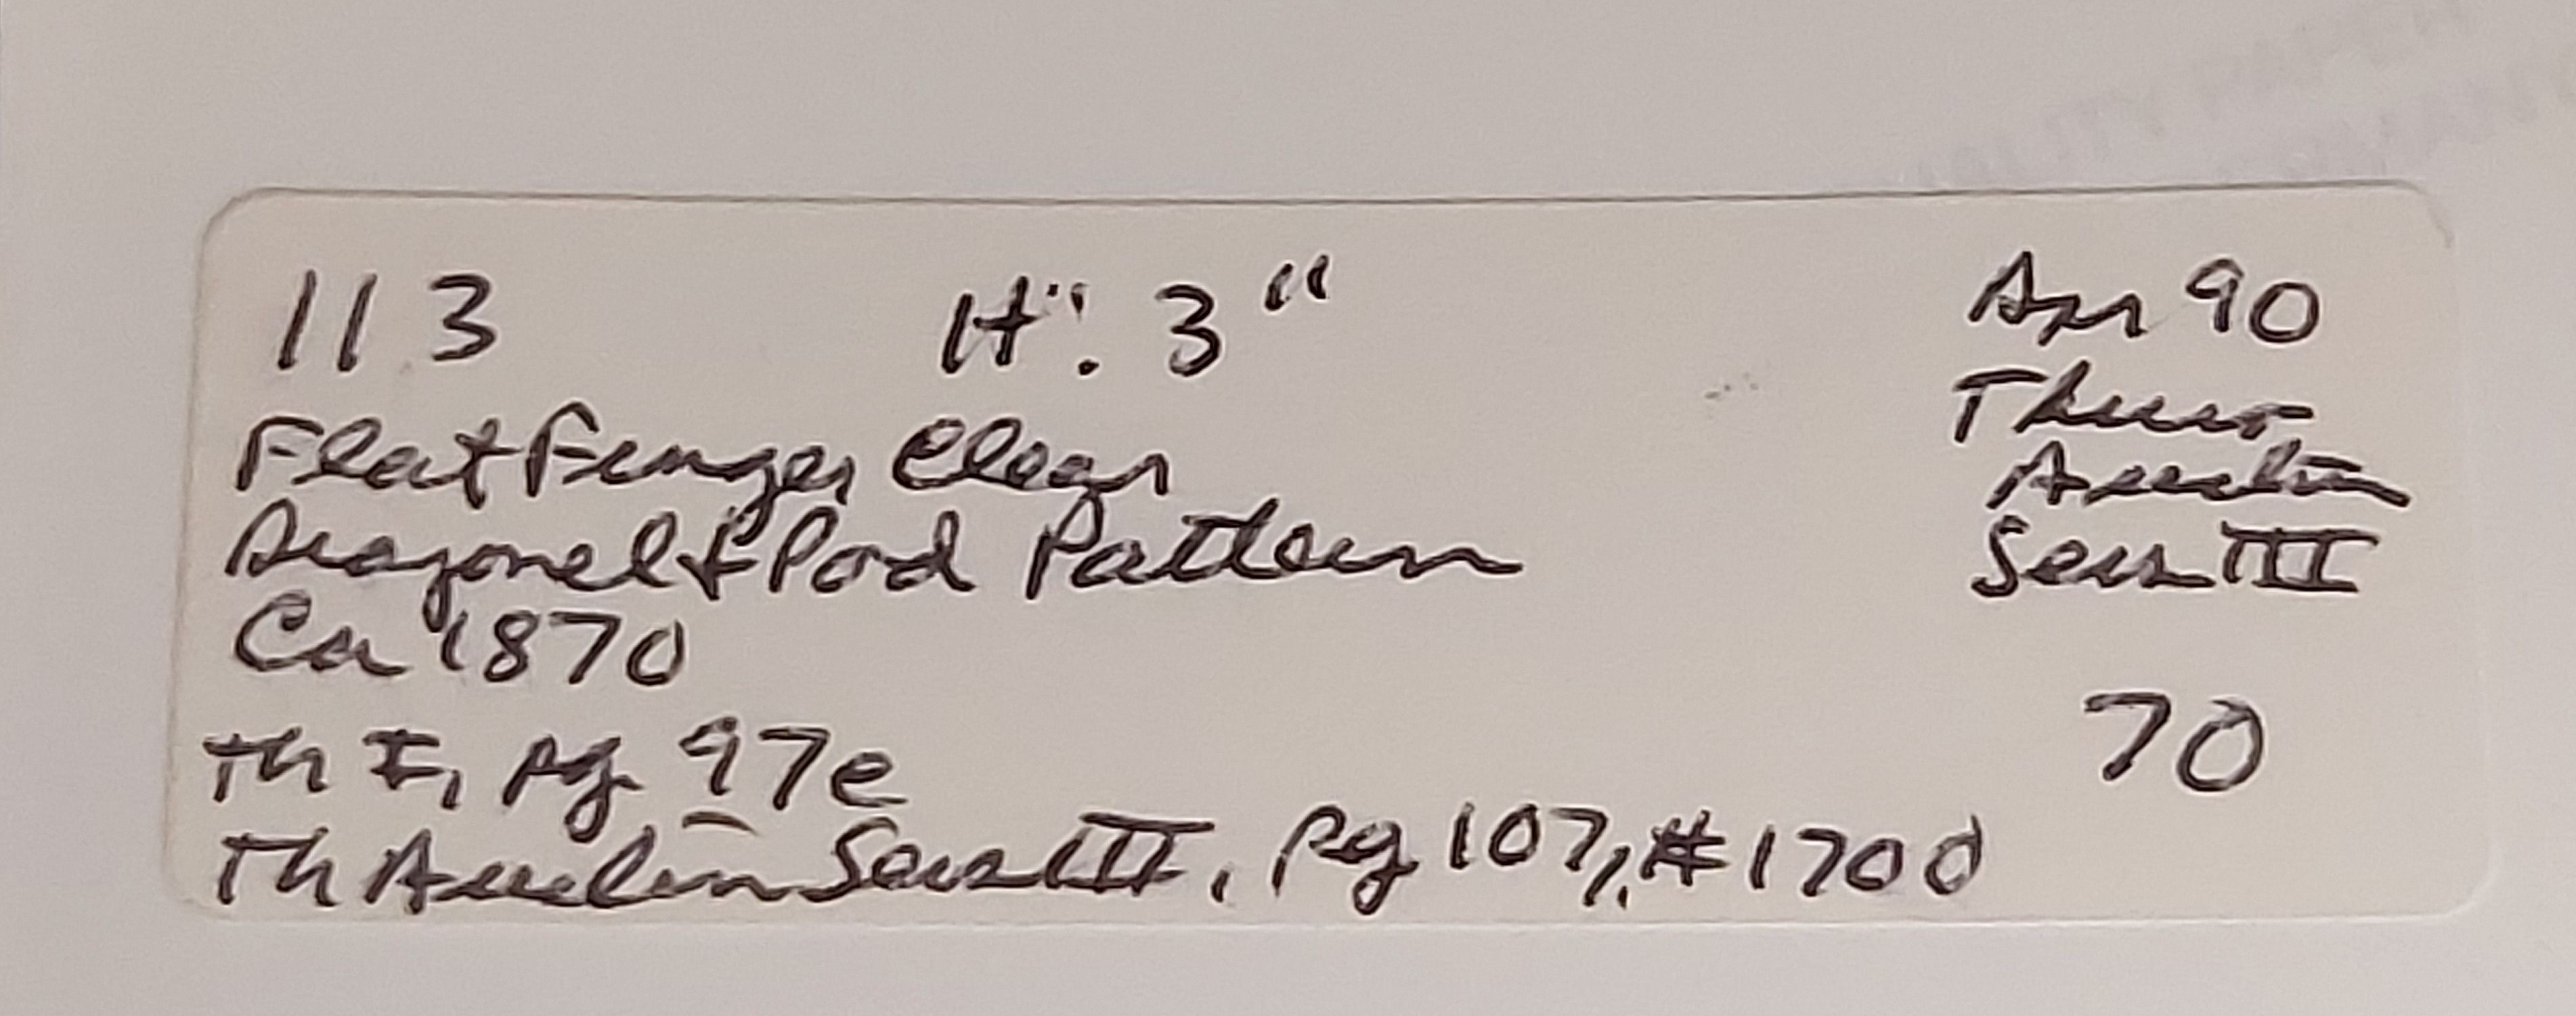 113 H": 3" Apr 90
Thuro
Flat Finger, Clear Auction
Diagonel & Pod Pattern Sess III
Ca 1870
70
Th I, pg 97e
Th Auction Sess III, pg 107, #1700